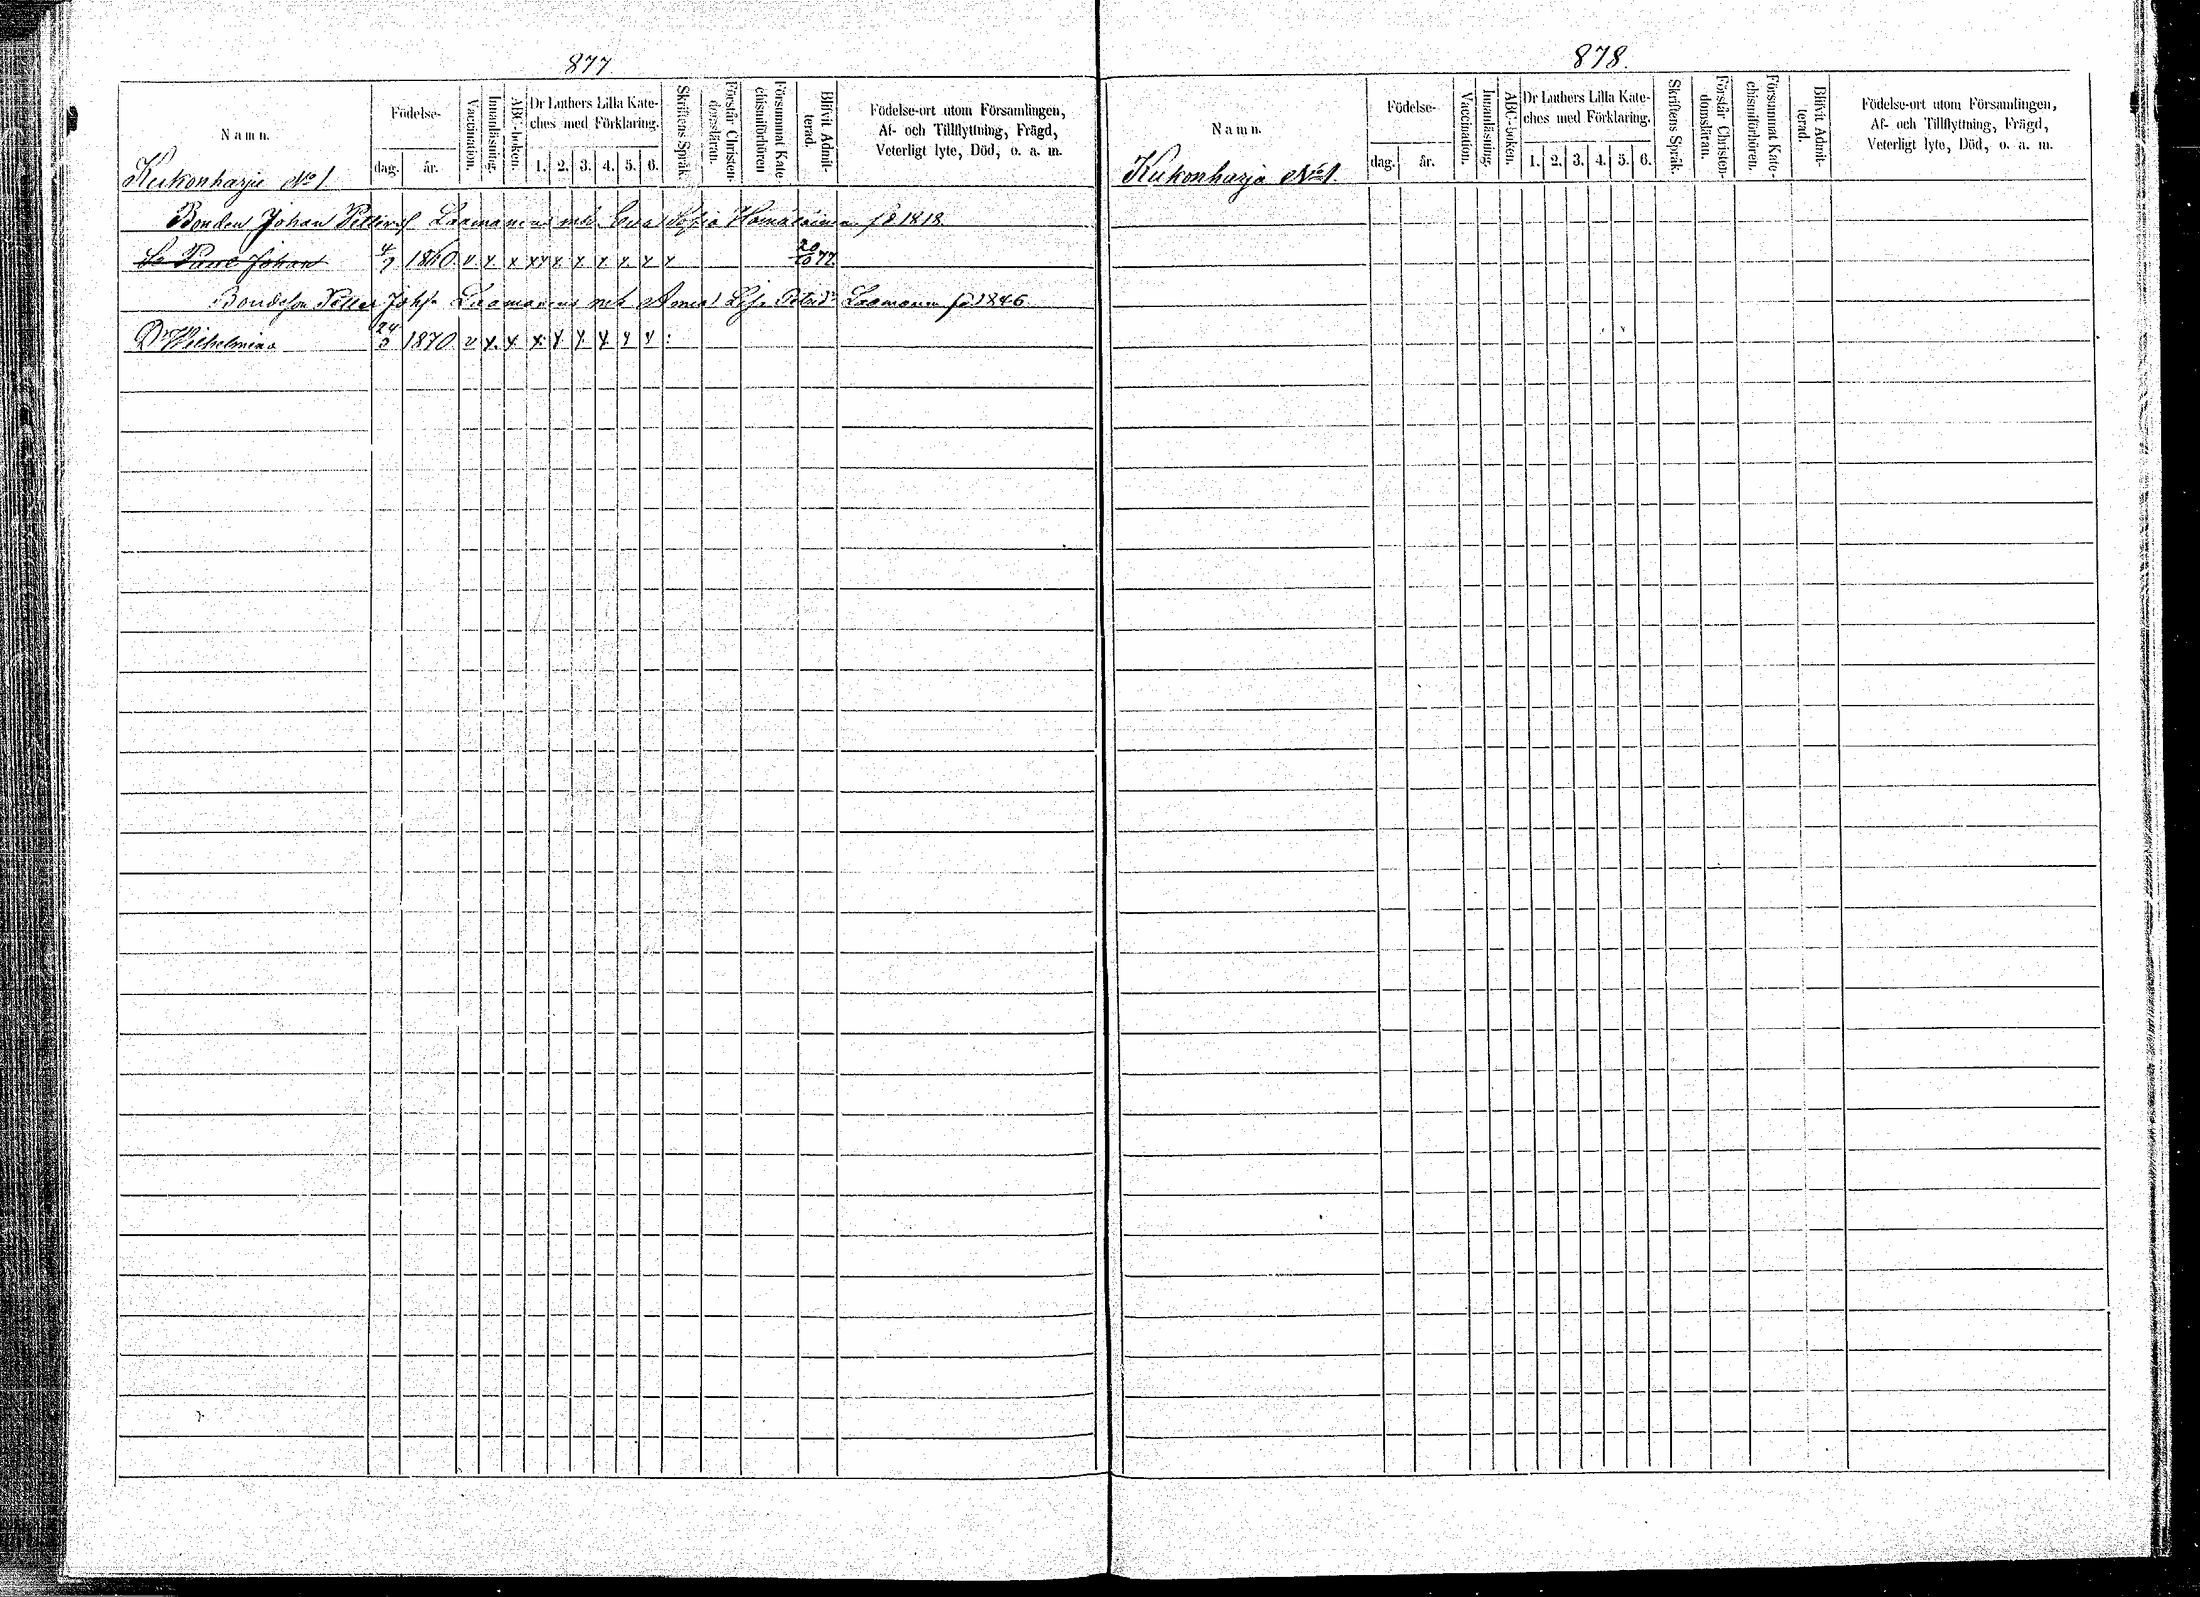 877
Namn.
Födelse-
dag. år.
Vaccination.
Innanläsning.
ABC-boken.
Dr Luthers Lilla Kate-
ches med Förklaring.
1. 2. 3. 4. 5. 6.
Skriftens Språk.
Förstår Christen-
domsläran.
Försummat Kate-
chismiförhören
Blifvit Admit-
terad.
Födelse-ort utom Församlingen,
Af- och Tillflyttning, Frägd,
Veterligt lyte, Död, o. a. m.
Kukonharju No 1
Bonden Johan Petters Laamanens med Eva Sofia Hämäläinen fd 1818.
So Paul Johan 4/7 1860 v x x xx x x x x x x 20/10 77.
Bondeson Petter Johs Laamanens och Anna Lisa Petersd Laamanen fd 1846
Dr Wilhelmina 24/3 1870 v x x x x x x x x :
878.
Namn.
Födelse-
dag. år.
Vaccination.
Innanläsning.
ABC-boken.
Dr Luthers Lilla Kate-
ches med Förklaring.
1. 2. 3. 4. 5. 6.
Skriftens Språk.
Förstår Christen-
domsläran.
Försummat Kate-
chismiförhören.
Blifvit Admit-
terad.
Födelse-ort utom Församlingen,
Af- och Tillflyttning, Frägd,
Veterligt lyte, Död, o. a. m.
Kukonharju No 1.